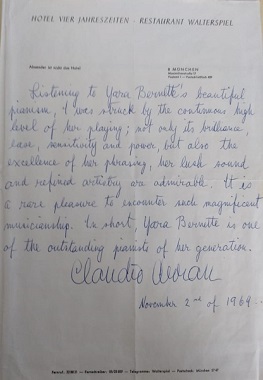 HOTEL VIER JAHRESZEITEN · RESTAURANT WALTERSPIEL
8 MÜNCHEN
Listening to Yara Bernette's beautiful
pianism, I was struck by the continuous high
level of her playing; not only its brilliance,
ease, sensitivity and power, but also the
excellence of her phrasing, her lush sound
and refined artistry was admirable. It is
a rare pleasure to encounter such magnificent
musicianship. In short, Yara Bernette is one
of the outstanding pianists of her generation.
Claudio Arrau
November 2nd of 1964.